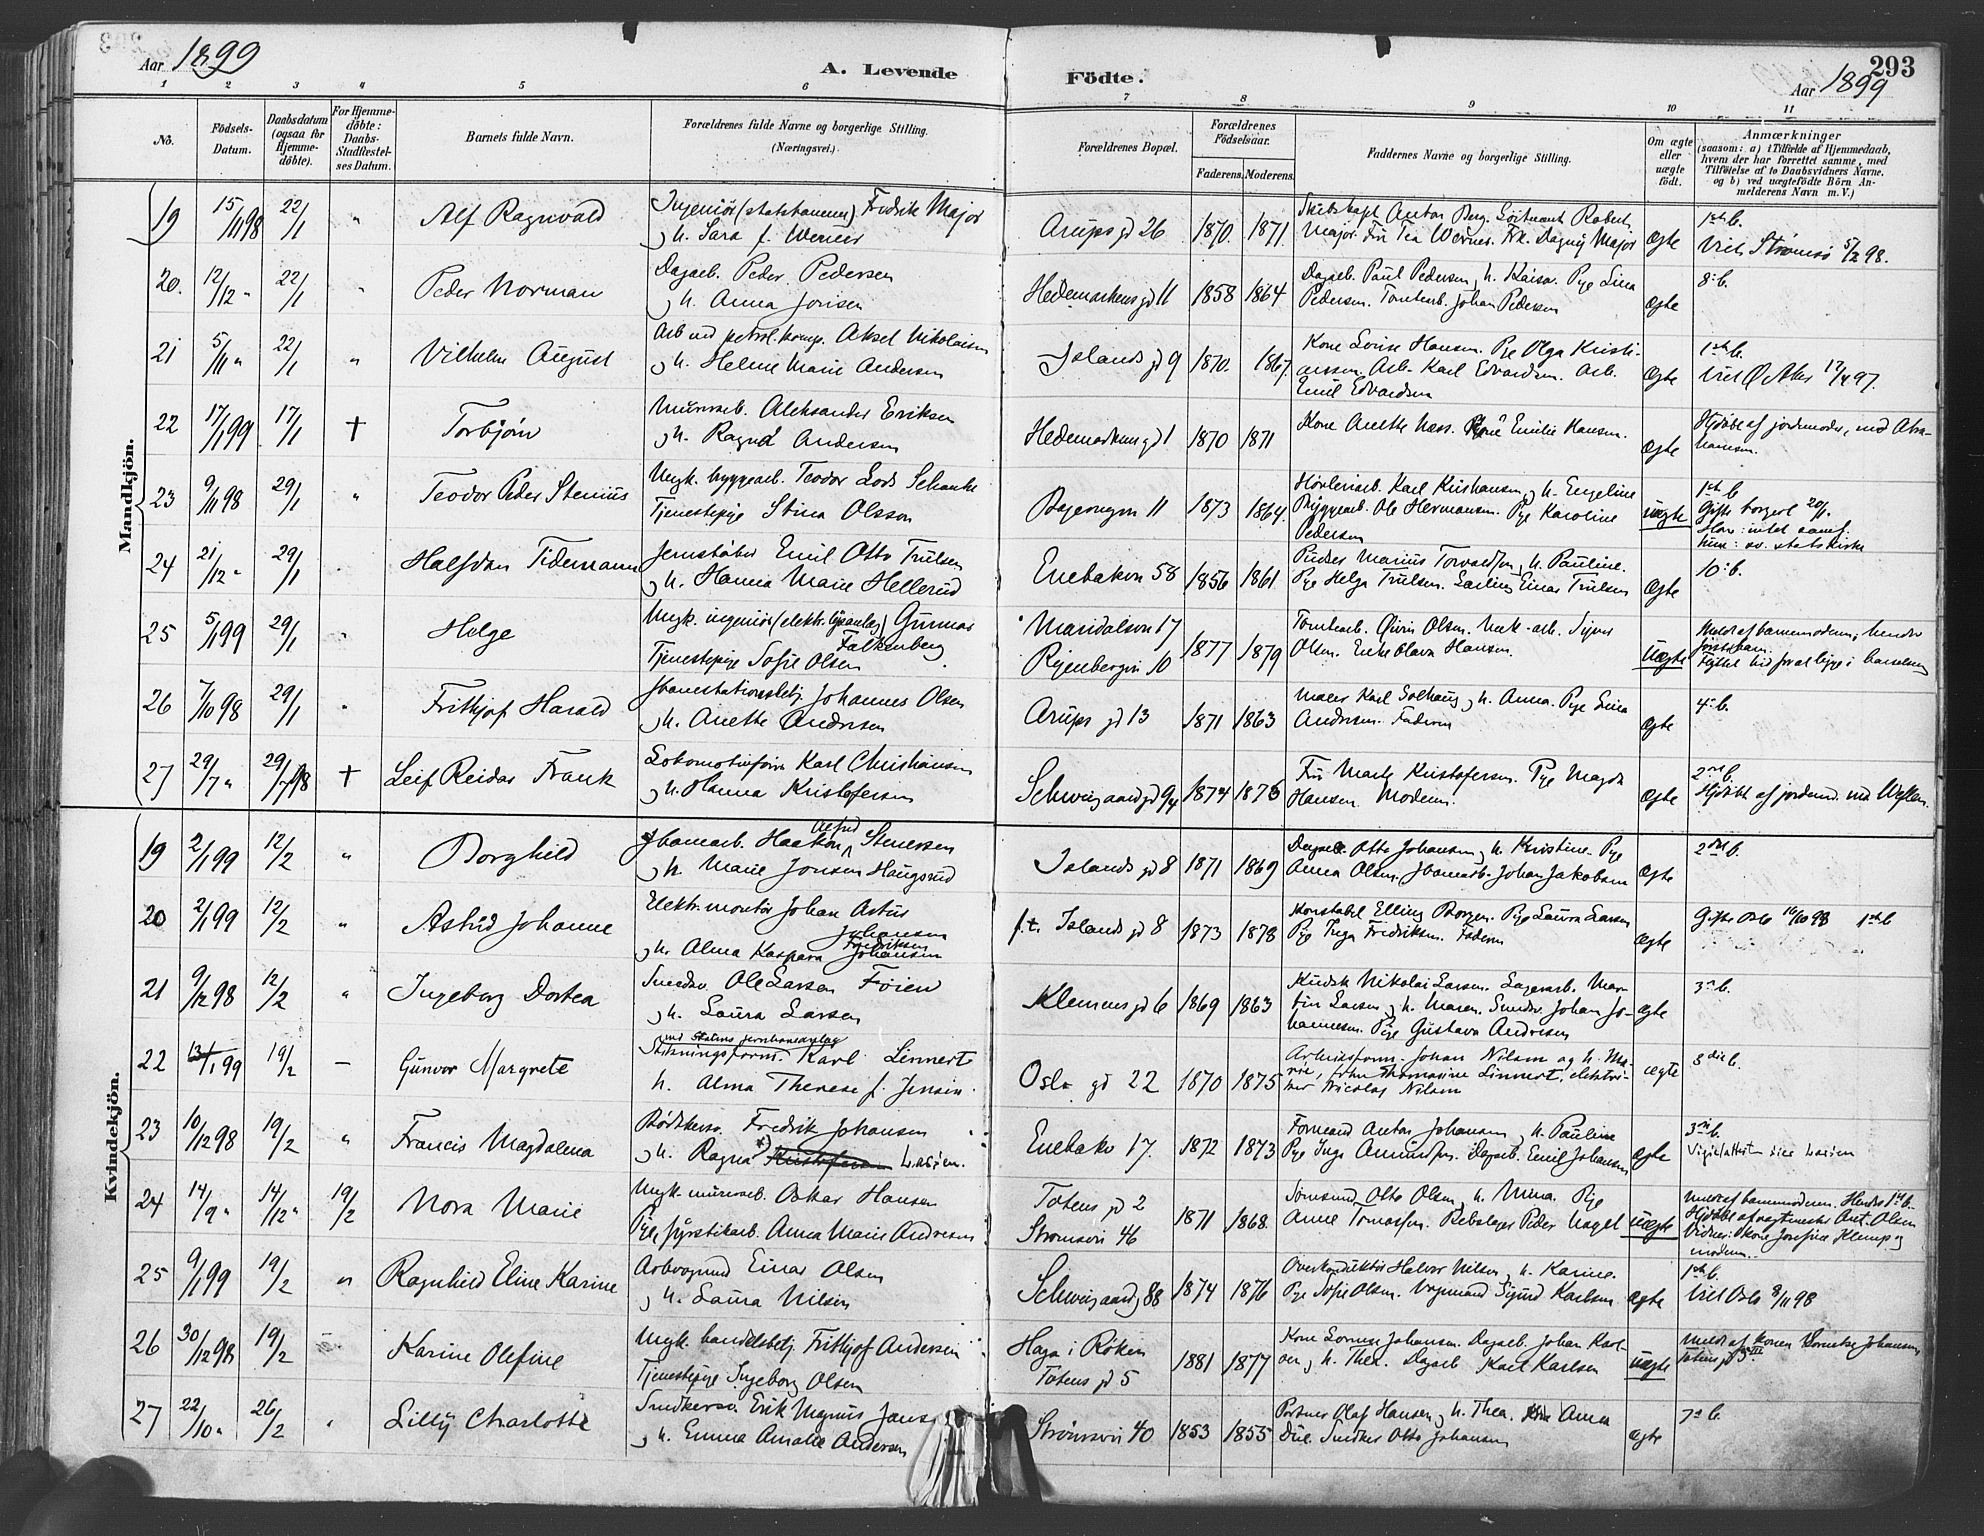 Aar 1899
A. Levende
Födte.
293
Aar 1899
1 2 3 4 5 6 7 8 9 10 11
No.
Födsels-Datum.
Daabsdatum (ogsaa for Hjemme-döbte).
For Hjemme-döbte: Daabs-Stadfestel-ses Datum.
Barnets fulde Navn.
Forældrenes fulde Navne og borgerlige Stilling.
(Næringsvei.)
Forældrenes Bopæl.
Forældrenes Födselsaar.
Faderens. Moderens.
Faddernes Navne og borgerlige Stilling.
Om ægte eller uægte födt.
Anmærkninger
(saasom: a) i Tilfælde af Hjemmedaab,
hvem der har forrettet samme, med
Tilföielse af to Daabsvidners Navne.
og b) ved uægtefödte Börn An-
melderens Navn m. V.)
Mandkjön.
19 15/11 98 22/1 " Alf Ragnvald
Fredrik Major
h. Sara f. Werner
Arups gd 26 1870. 1871.
Major. Fru Tea Werner. Frk. Dagny Major
Ægte
1ste b.
Viet Strömsö 5/2 98.
20. 12/12 " 22/1 " Peder Norman
Dagarb. Peder Pedersen
h. Anna Jonsen
Hedemarkens gd 11 1858 1864
Dagarb. Paul Pedersen, h. Kaisa. Pge Lina
Pedersen. Tomtearb. Johan Pedersen
Ægte
8: b.
21 5/11 " 22/1 " Vilhelm August
Arb ved petrol. komp. Aksel Nikolaisen
h. Helene Marie Andersen
Islands gd 9 1870. 1867.
Kone Lovise Hansen. Pge Olga Kristi-
ansen. Arb. Karl Edvardsen. Arb.
Emil Edvardsen
Ægte
1ste b.
Viet Ø. Aker 97.
22 17/1 99 17/1 † Torbjörn
Murarb. Aleksander Eriksen
h. Ragna Andersen
Hedemarkens gd 1 1870 1871
Kone Anette Næss. Kone Emilie Hansen.
Ægte
Hjdöbt af jordmoder, md Abra-
hamsen.
23 9/11 98 29/1 " Teodor Peder Stenius
Ungk. byggearb. Teodor
Tjenestepige Stina Olsson
11 1873 1864.
Hövleriarb. Karl Kristiansen, h. Engeline
Byggearb. Ole Hermansen. Pge Karoline
Pedersen
uægte
1ste b
Gifte borgerl 20/1.
Han: intet samf.
hun: sv. statskirke
24 21/12 " 29/1 Halfdan Tidemann
Jernstöber Emil Otto Trulsen
h. Hanna Marie Hellerud
Enebakvn 58 1856 1861.
Pudser Marius Torvaldsen, h. Pauline.
Pge Helga Trulsen. Einar Trulsen
Ægte
10: b.
25 5/1 99 29/1 " Helge
Ungk. ingeniör (elektr. lysanlæg) Gunnar
Falkenberg
Tjenestepige Sofie Olsen
Maridalsvn 17
Ryenbergvn 10
1877 1879
Tomtearb. Olsen. Sivert
Olsen. Enke Olava Hansen.
Uægte
Meldt af barnemoderen, hendes
förstebarn.
Flyttet hid for at ligge i barselseng
26 7/10 98 29/1 " Frithjof Harald
Jbanestationsbetj. Johannes Olsen
h. Anette Andersen
Arups gd 13 1871 1863
Maler Karl Solhaug, h. Anna. Pge Lina
Andersen. Faderen
Ægte
4: b.
27 29/7 " 29/7 98 † Leif Reidar Frank
Lokomotivförer Karl Christiansen
h. Hanna Kristofersen
Schweigaardgd 94 1874 1876
Fru Marte Kristofersen. Pge Magda
Hansen. Moderen.
Ægte
2det b.
Hjdöbt af jordmd.
Kvindekjön.
19 2/1 99 12/2 " Borghild
Jbanearb. Haakon Alfred Stenersen
h. Marie Jonsen Haugsrud
Islands gd 8 1871 1869
Dagarb. Otto Johansen, h. Kristine. Pge
Anna Olsen. Jbanearb. Johan Jakobsen
Ægte
2det b.
20 2/1 99 12/2 " Astrid Johanne
Elektr. montör Johan Astus
Johansen
h. Alma Kaspara Fredriksen Johansen
f.t. Islands gd 8 1873 1878
Konstabel Elling Borgen. Pge Laura Larsen
Pge Inga Fredriksen. Faderen
Ægte
Gifte Oslo 16/10 98 1ste b
21 9/12 98 12/2 " Ingeborg Dortea
Smedsv. Ole Larsen Föien
h. Laura Larsen
Klemens gd 6 1869 1863
Kudsk Nikolai Larsen. Lagerarb. Mar-
tin Larsen, h. Maren. Smedsv. Johan Jo-
hannesen. Pge Gustava Andresen
Ægte
3: b.
22 13/1 99 19/2 – Gunvor Margrete
ved Statens jernbaneanlæg
Karl Linnert
h. Alma Therese f. Jensen.
Oslo gd 22 1870 1875
Arbeidsform. Johan Nilsen og h. Ma-
rie, Thomasine Linnert, elektri-
ker Nicolay Nilsen
ægte
3die b.
23 10/12 98 19/2 " Francis Magdalena
Bödkersv. Fredrik Johansen
h. Ragna *) Kristofersen
Enebakv 17. 1872 1873
Formand Anton Johansen, h. Pauline
Pge Inga Amundsen. Dagarb. Emil Johansen
Ægte
3: b.
24 14/9 " 14/12 " 19/2 Nora Marie
Ungk. murarb. Oskar Hansen
Pge fyrstikarb. Anna Marie Andresen
Totens gd 2
Strömsvn 46
1871 1868.
Otto Olsen, h. Mina. Pge
Anne Tomassen. Rebslager Peder Naget
Uægte
Meldt af barnmoderen. Hendes 1ste b.
Hjdöbt af vagtmester Ant. Olsen
Vidner: Kone Josefine Klemp og
moderen.
25 9/1 99 19/2 " Ragnhild Eline Karine
Einar Olsen
h. Laura Nilsen
Schweigaardg 88 1874 1876
Overkonduktör Halvor Nilsen, h. Karine.
Pge Sofie Olsen. Vognmand Sigurd Karlsen
Ægte
1ste b.
Viet Oslo 8/11 98
26 30/12 98 19/2 Karine Olefine
Ungk. handelsbetj. Frithjof Andersen
Tjenestepige Ingeborg Olsen
Haga i Röken
Totens gd 5
1881 1877
Kone Johansen. Dagarb. Johan Karl-
sen, h. Thea. Dagarb Karl Karlsen
Uægte
Meldt af konen Johansen
Totens gd 5 III
27 22/10 " 26/2 " Lilly Charlotte
Smedkersv. Erik Magnus Jans
h. Emma Amalie Andersen
Strömsvn 40 1853 1855
Portner Olaf Hansen, h. Thea. Anna
Due. Snedker Otto Johansen
Ægte
7: b.